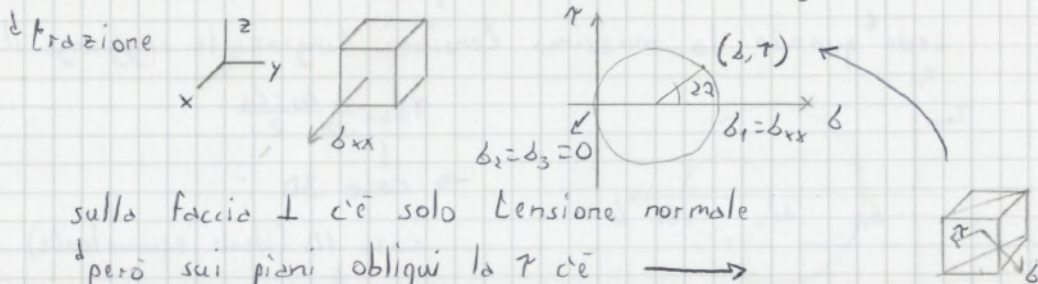 trazione
z
y
x
σxx
τ
(σ, τ)
2α
σ1=σxx
σ
σ2=σ3=0
sulla faccia ⊥ c'è solo tensione normale
però sui piani obliqui la τ c'è →
τ
σ